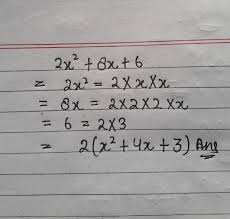 2x² + 8x + 6
= 2x² = 2 × x × x
= 8x = 2 × 2 × 2 × x
= 6 = 2 × 3
= 2(x² + 4x + 3) Ans